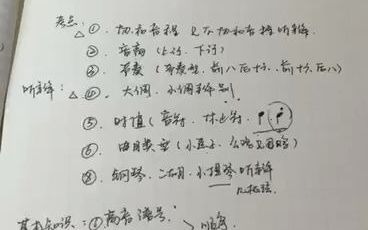 考点：△①. 协和音程 及不协和音程听辨.
②. 音高（上行、下行）
③. 节奏（节奏型、前八后十六、前十六后八）
听辨：△④. 大调、小调听辨别
⑤. 时值（音符、休止符.
⑥. 曲目类型（小
⑧. 钢琴、二胡、小提琴听辨
基本知识：①高音谱号.
顺序